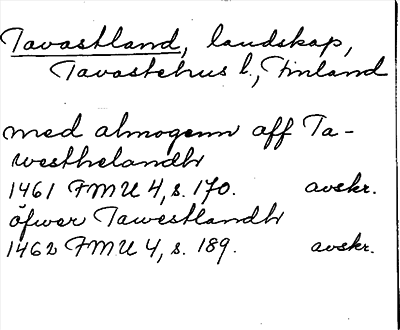 Tavastland, landskap,
Tavastehus l., Finland
med almogenn aff Ta-
westhelandh
1461 FMU 4, s. 170. avskr.
öfwer Tawestlandh
1462 FMU 4, s. 189. avskr.